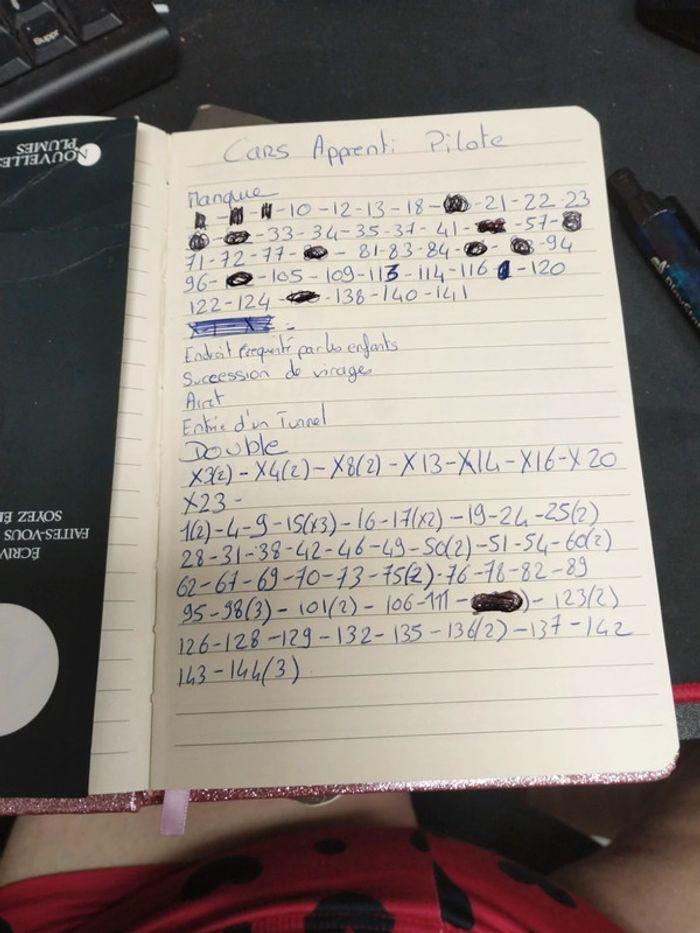 Suppr
NOUVELLES
PLUMES
ÉCRIV
FAITES-VOUS
SOYEZ
Cars Apprenti Pilote
Manque
-10-12-13-18- -21-22-23
-33-34-35-37-41- -57-
71-72-77- -81-83-84- - -94
96- -105-109-113-114-116 -120
122-124- -138-140-141
Endroit fréquenté par les enfants
Succession de virages
Arret
Entrée d'un Tunnel
Double
X3(2)-X4(2)-X8(2)-X13-X14-X16-X20
X23-
1(2)-4-9-15(x3)-16-17(x2)-19-24-25(2)
28-31-38-42-46-49-50(2)-51-54-60(2)
62-67-69-70-73-75(2)-76-78-82-89
95-98(3)-101(2)-106-111- )-123(2)
126-128-129-132-135-136(2)-137-142
143-144(3)